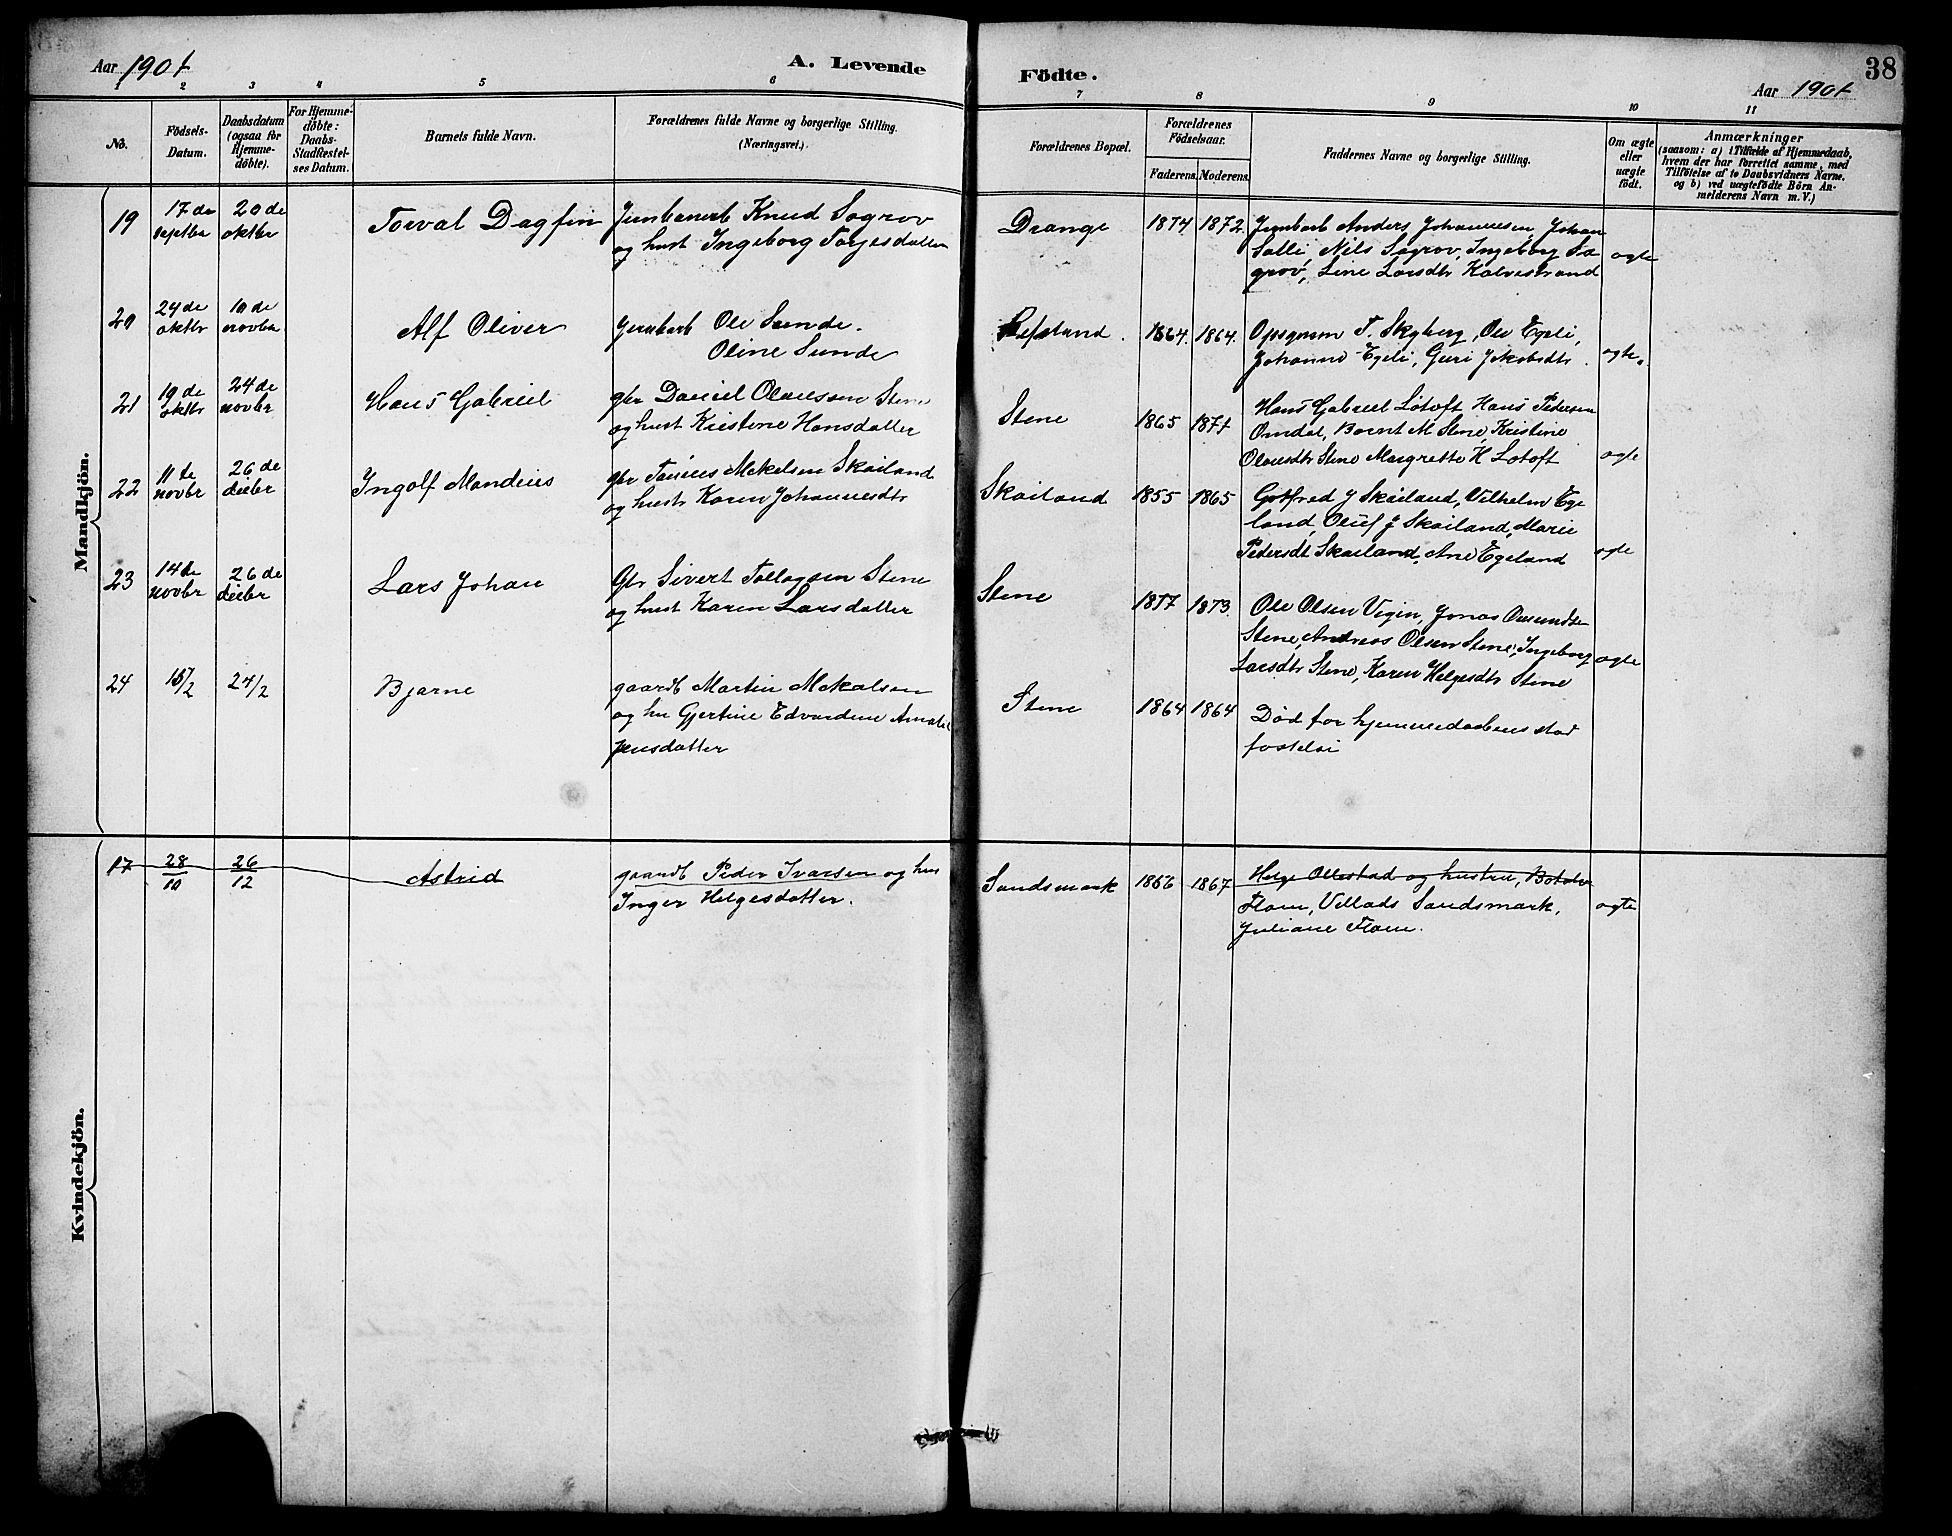 Aar 1901
A. Levende
Födte.
Aar 1901
38
1 2 3 4 5 6 7 8 9 10 11
No.
Födsels-
Datum.
Daabsdatum
(ogsaa for
Hjemme-
döbte).
For Hjemme-
döbte:
Daabs-
Stadfæstel-
ses Datum.
Barnets fulde Navn.
Forældrenes fulde Navne og borgerlige Stilling.
(Næringsvei.)
Forældrenes Bopæl.
Forældrenes
Födselsaar.
Faderens. Moderens.
Faddernes Navne og borgerlige Stilling.
Om ægte
eller
uægte
födt.
Anmærkninger
(saasom: a) i Tilfælde af Hjemmedaab,
hvem der har forrettet samme, med
Tilföielse af to Daabsvidners Navne,
og b) ved uægtefödte Börn An-
melderens Navn m. V.)
Mandkjön.
19
17 de
septbr
20 de
oktbr
Torval Dagfin
Jernbanearb Knud Sogrov
og hust Ingeborg Torjesdatter
Drange
1874 1872
Jernbarb Anders Johannesen, Johan
Salli, Nils Sogrov, Ingeborg So
grov, Line Larsdtr Kalvestrand
ægte
20
24 de
oktbr
10 de
novbr
Alf Oliver
Jernbarb Ole Sunde.
Oline Sunde
Refsland
1864. 1864.
Opsynsm T. Skyberg, Ole Egeli,
Johanne Egeli, Guri Jakobsdtr.
ægte.
21
19 de
oktbr
24 de
novbr
Hans Gabriel
gbr Daniel Olaussen Stene
og hust Kristene Hansdatter
Stene
1865 1871
Hans Gabriel Lotoft Hans Pedersen
Omdal, Bernt M Stene, Kristine
Olausdtr Stene Margrette H Lotoft
ægte
22
11 te
novbr
26 de
decbr
Ingolf Mandius
gbr Tønnes Mekalsen Skailand
og hustr Karen Johannesdtr
Skailand
1855 1865
Gotfred J Skailand, Vilhelm Ege
land, Oluf J Skailand, Marie
Pedersdt Skailand, Ane Egeland
ægte
23
14 de
novbr
26 de
decbr
Lars Johan
Gbr Sivert Tollagsen Stene
og hust Karen Larsdatter
Stene
1877 1873
Ole Olsen Vigen, Jonas Omundsen
Stene, Andreas Olsen Stene, Ingeborg
Larsdtr Stene, Karen Helgesdtr Stene
ægte
24
15/2
27/2
Bjarne
gaardb Martin Mekalsen
og hu Gjertine Edvardine Amalie
Jensdatter
Stene
1864 1864
Død før hjemmedaabens stad
fæstelse
Kvindekjön.
17
28/10
26/12
Astrid
gaardb Peder Ivarsen og hus
Inger Helgesdatter.
Sandsmark
1866 1867
Helge Ollestad og hustru, Botolv
Flom, Villads Sandsmark,
Juliane Flom.
ægte